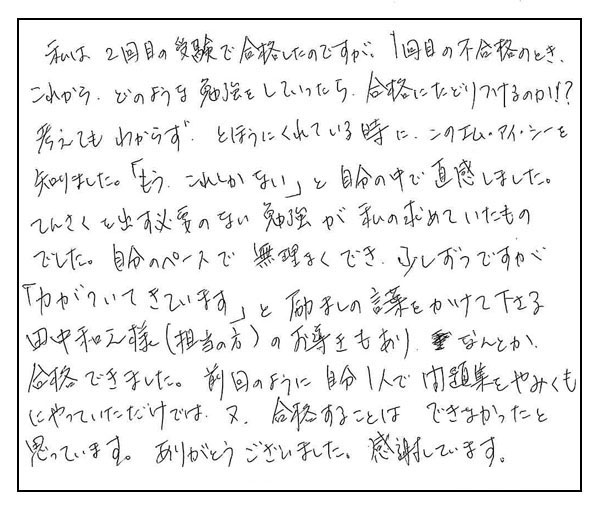 私は2回目の受験で合格したのですが、1回目の不合格のとき、
これから、どのような勉強をしていったら、合格にたどりつけるのかは?
考えてもわからず、とほうにくれている時に、このエム・アイ・シーを
知りました。「もう、これしかない」と自分の中で直感しました。
てんさくを出す必要のない勉強が私の求めていたもの
でした。自分のペースで無理なくでき、少しずつですが
「力がついてきています」と励ましの言葉をかけて下さる
田中和之様(担当の方)のお導きもあり、なんとか、
合格できました。前回のように自分1人で問題集をやみくも
にやっていただけでは、又、合格することはできなかったと
思っています。ありがとうございました。感謝しています。